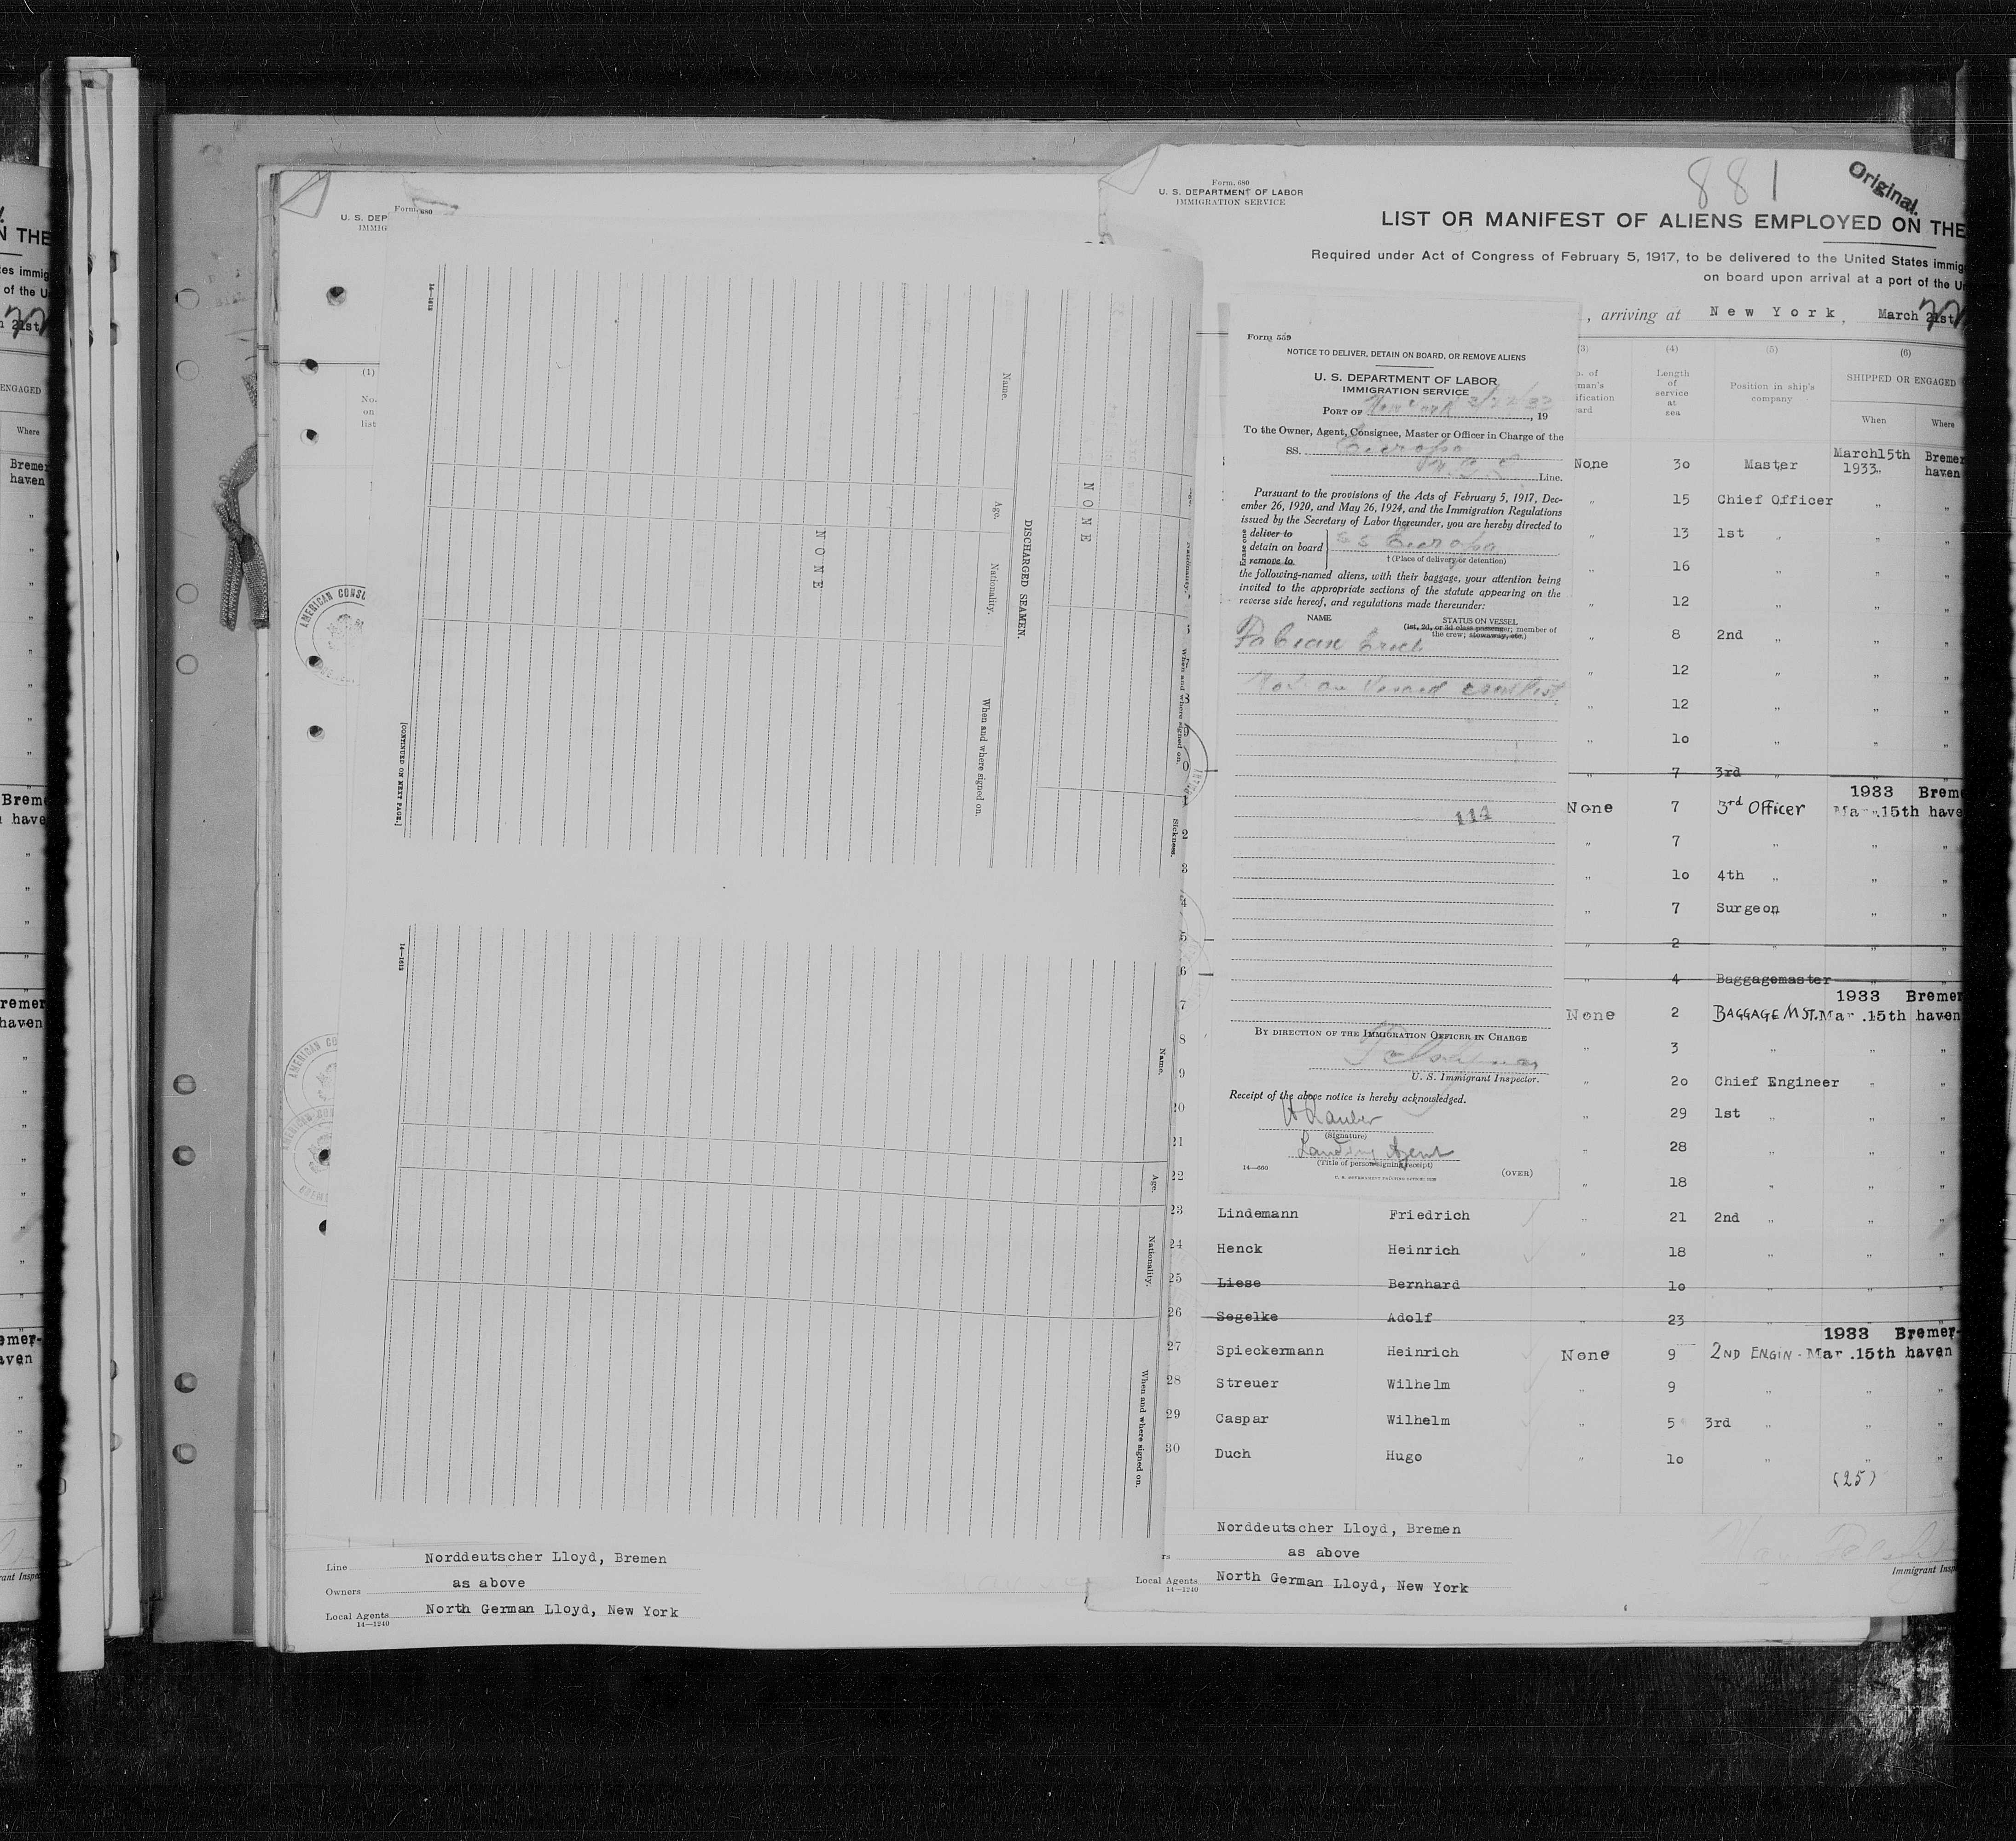 N THE
tes immig
of the U
21st
ENGAGED
Where
Bremer
haven
Breme
haven
Bremer
haven
Bremer-
haven
Form 680
U. S. DEP
IMMIG
(1)
No.
on
list
AMERICAN CONSU
14—1613
[CONTINUED ON NEXT PAGE.]
NONE
Name.
Age.
Nationality.
When and where signed on.
DISCHARGED SEAMEN.
NONE
Nationality.
When and where signed on.
Sickness.
14—1613
Name.
Age.
Nationality.
When and where signed on.
AMERICAN CO
Line Norddeutscher Lloyd, Bremen
Owners as above
Local Agents North German Lloyd, New York
14—1240
Form 680
U. S. DEPARTMENT OF LABOR
IMMIGRATION SERVICE
881
Original.
LIST OR MANIFEST OF ALIENS EMPLOYED ON THE
Required under Act of Congress of February 5, 1917, to be delivered to the United States immig
on board upon arrival at a port of the Un
, arriving at New York, March 21st 22
Form 559
NOTICE TO DELIVER, DETAIN ON BOARD, OR REMOVE ALIENS
U. S. DEPARTMENT OF LABOR
IMMIGRATION SERVICE
PORT OF New York 3/22/33, 19
To the Owner, Agent, Consignee, Master or Officer in Charge of the
SS. Europa
N. G. L. Line.
Pursuant to the provisions of the Acts of February 5, 1917, Dec-
ember 26, 1920, and May 26, 1924, and the Immigration Regulations
issued by the Secretary of Labor thereunder, you are hereby directed to
Erase one
deliver to
detain on board SS Europa
remove to
† (Place of delivery or detention)
the following-named aliens, with their baggage, your attention being
invited to the appropriate sections of the statute appearing on the
reverse side hereof, and regulations made thereunder:
NAME
STATUS ON VESSEL
(1st, 2d, or 3d class passenger; member of
the crew; stowaway, etc.)
Fabian Erich
Not on Visaed crew list
114
BY DIRECTION OF THE IMMIGRATION OFFICER IN CHARGE
U. S. Immigrant Inspector.
Receipt of the above notice is hereby acknowledged.
(Signature)
Landing Agent
(Title of person signing receipt)
14—660
(OVER)
U. S. GOVERNMENT PRINTING OFFICE: 1929
(3)
(4)
(5)
(6)
Length
of
service
at
sea
Position in ship's
company
SHIPPED OR ENGAGED
When
Where
None 30 Master March15th 1933 Bremer
haven
" 15 Chief Officer " "
" 13 1st " " "
" 16 " " "
" 12 " " "
" 8 2nd " " "
" 12 " " "
" 12 " " "
" 10 " " "
" 7 3rd " " "
1933 Breme
None 7 3rd Officer Mar .15th have
" 7 " " "
" 10 4th " " "
" 7 Surgeon " "
" 2 " " "
" 4 Baggagemaster " "
1933 Bremer
None 2 BAGGAGE MST. Mar .15th haven
" 3 " " "
" 20 Chief Engineer " "
" 29 1st " " "
" 28 " " "
" 18 " " "
23 Lindemann Friedrich " 21 2nd " " "
24 Henck Heinrich " 18 " " "
25 Liese Bernhard " 10 " " "
26 Segelke Adolf " 23 " " "
1933 Bremer-
27 Spieckermann Heinrich None 9 2ND ENGIN. Mar .15th haven
28 Streuer Wilhelm " 9 " " "
29 Caspar Wilhelm " 5 3rd " " "
30 Duch Hugo " 10 " " "
(25)
Norddeutscher Lloyd, Bremen
as above
Local Agents North German Lloyd, New York
14—1240
Immigrant Insp